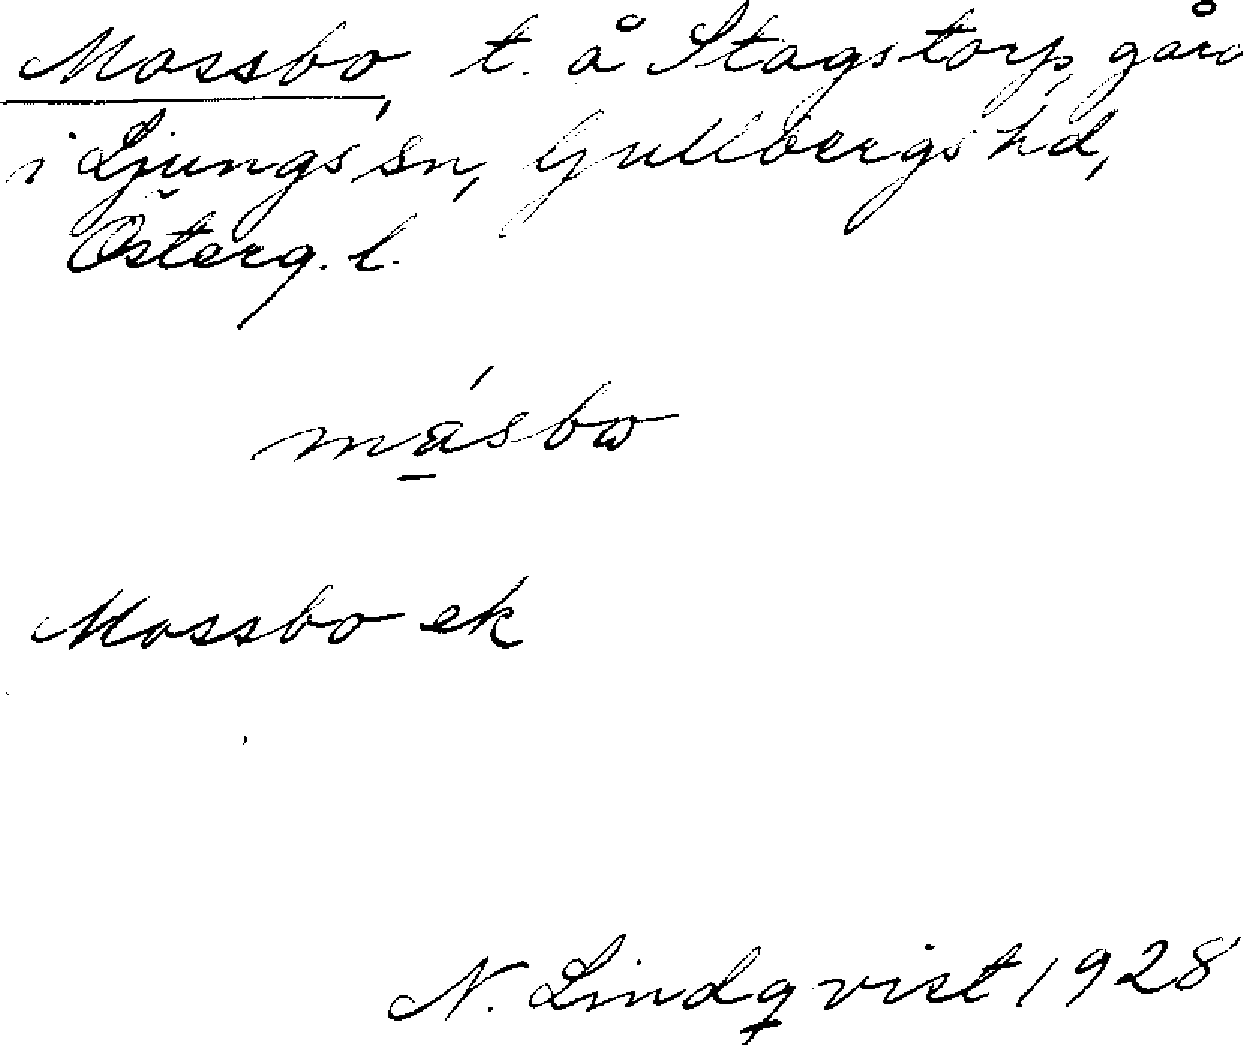 Mossbo, t. å Stagstorp gård
i Ljungs sn, Gullbergs hd,
Österg. l.
måsbω
Mossbo ek
N. Lindqvist 1928